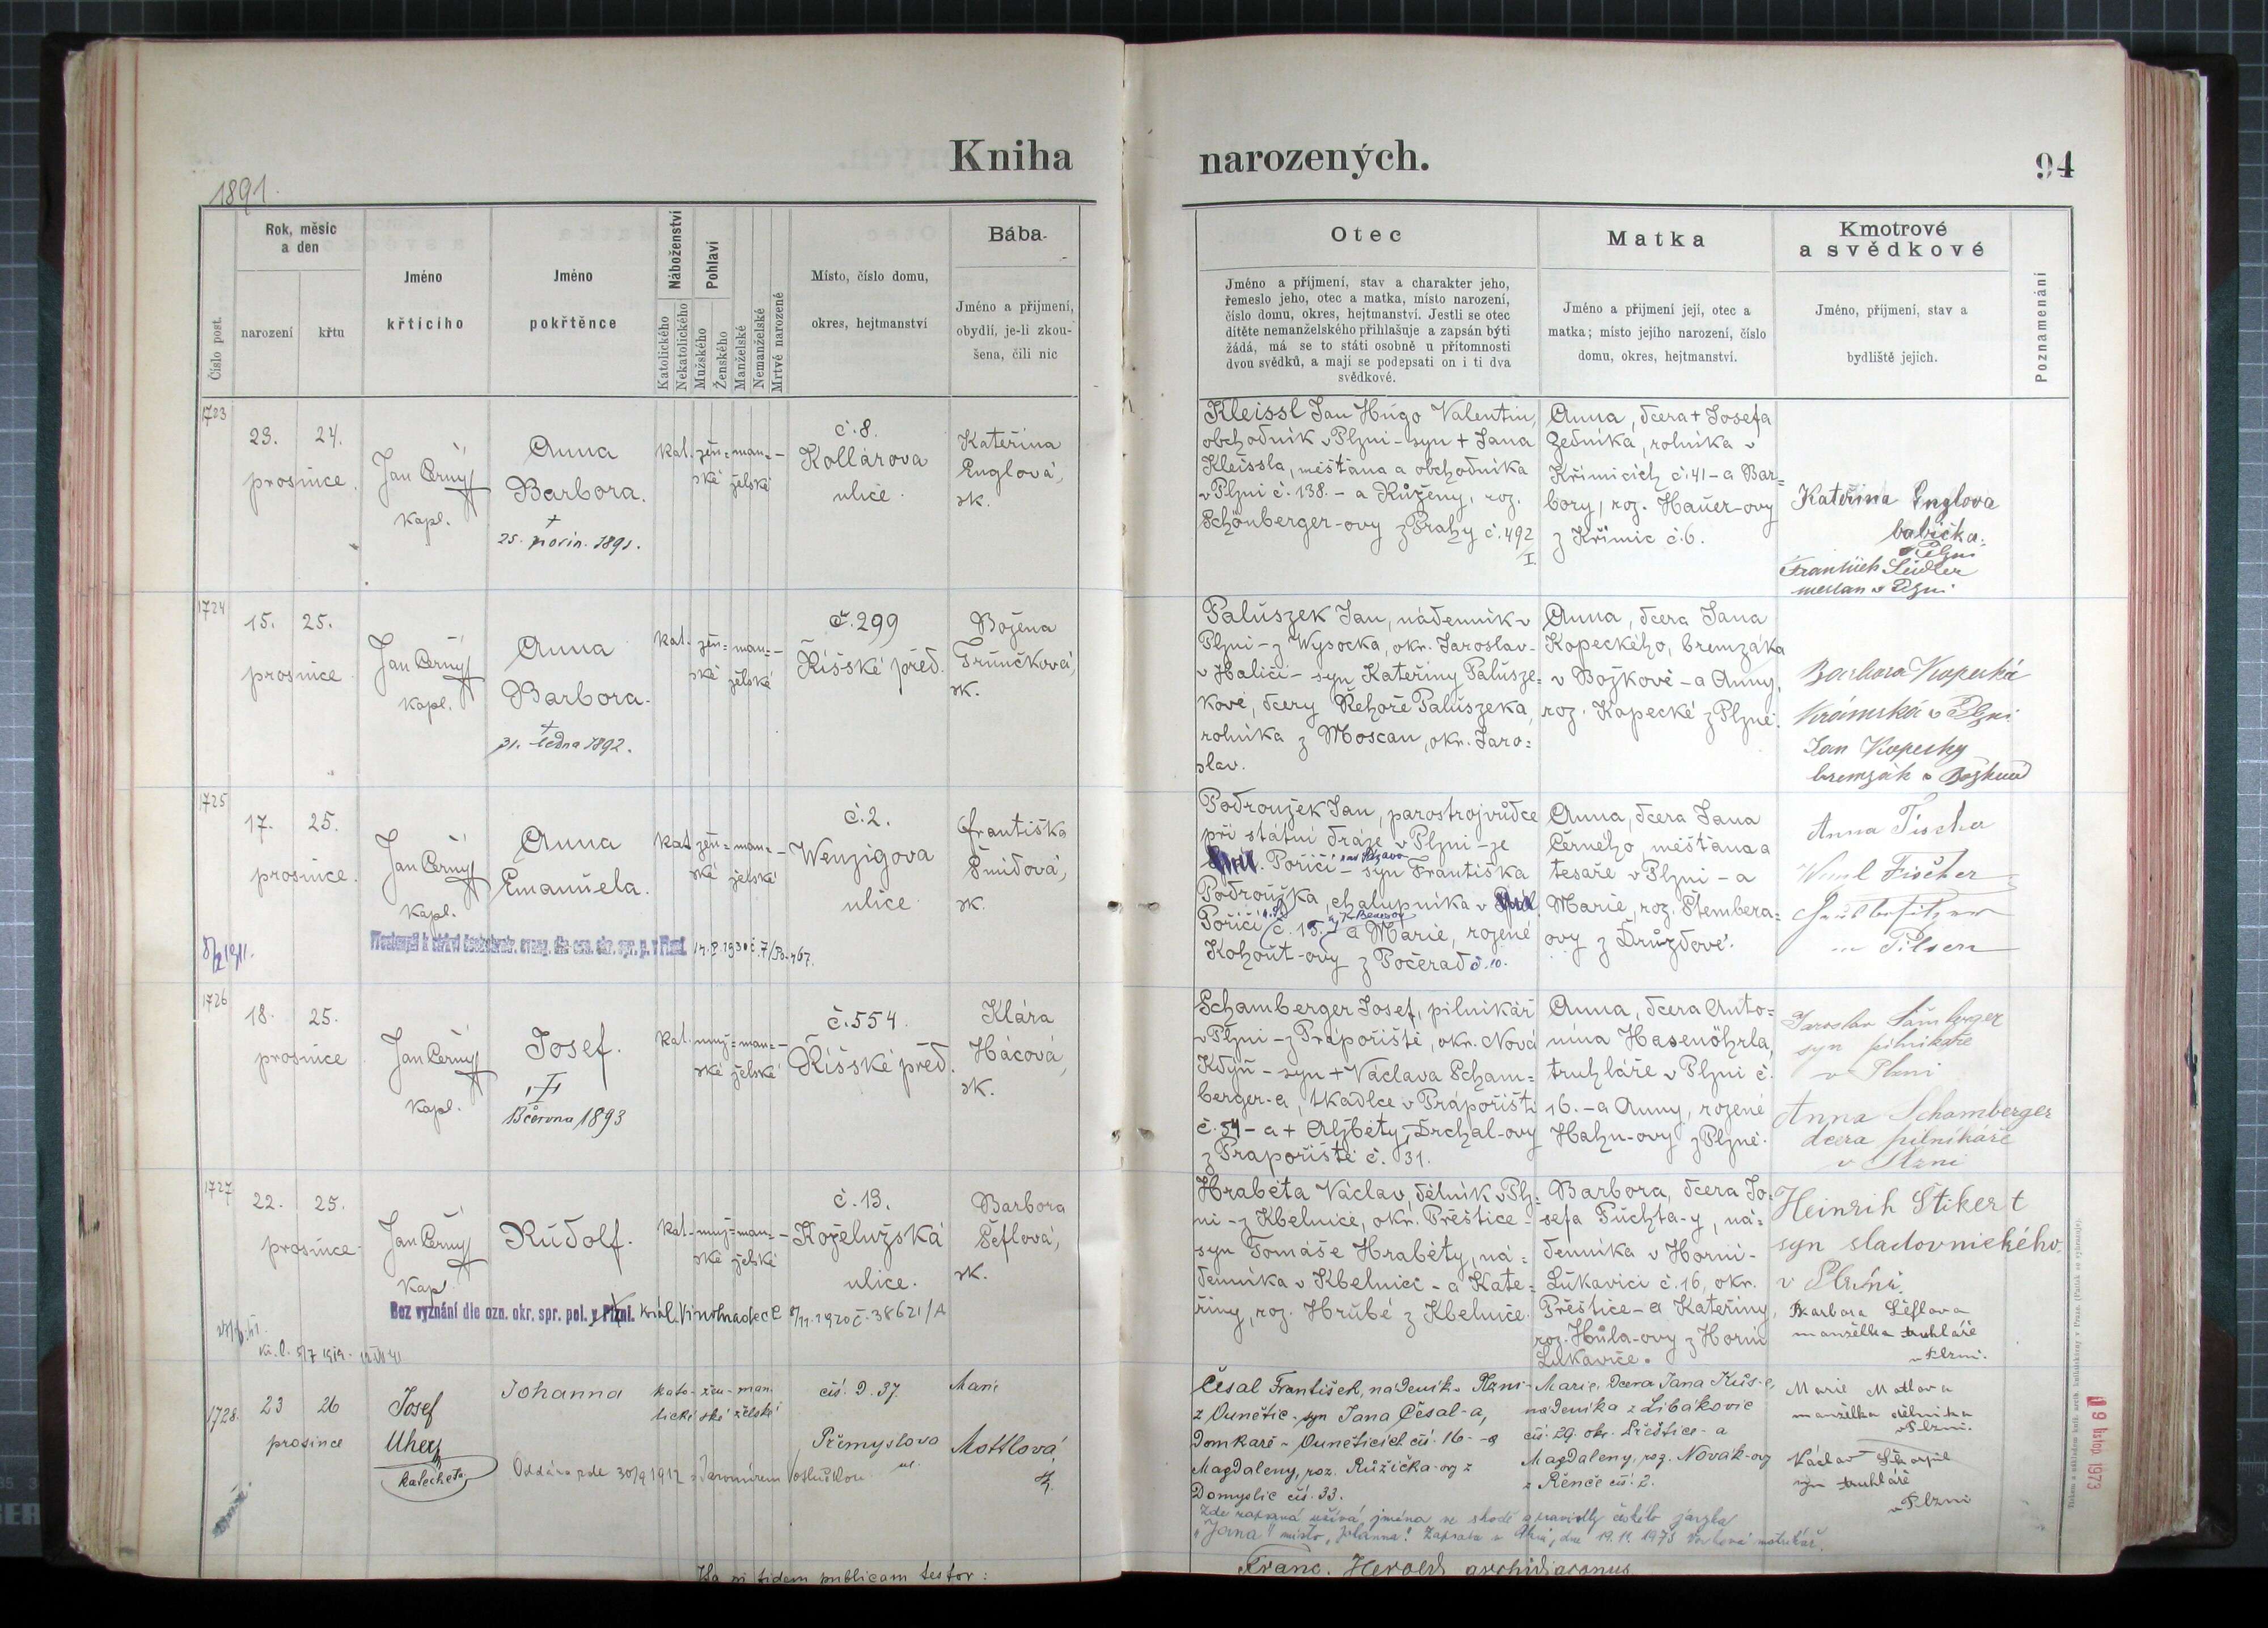 Kniha
narozených.
94
1891.
Číslo post.
Rok, měsíc
a den
narození
křtu
Jméno
křtícího
Jméno
pokřtěnce
Náboženství
Katolického
Nekatolického
Pohlaví
Mužského
Ženského
Manželské
Nemanželské
Mrtvě narozené
Místo, číslo domu,
okres, hejtmanství
Bába
Jméno a příjmení,
obydlí, je-li zkou-
šena, čili nic
Otec
Jméno a příjmení, stav a charakter jeho,
řemeslo jeho, otec a matka, místo narození,
číslo domu, okres, hejtmanství. Jestli se otec
dítěte nemanželského přihlašuje a zapsán býti
žádá, má se to státi osobně u přítomnosti
dvou svědků, a mají se podepsati on i ti dva
svědkové.
Matka
Jméno a příjmení její, otec a
matka; místo jejího narození, číslo
domu, okres, hejtmanství.
Kmotrové
a svědkové
Jméno, příjmení, stav a
bydliště jejich.
Poznamenání
1723
23. 24.
prosince.
Jan Černý
kapl.
Anna
Barbora.
†
25. prosin. 1891.
kat. žen= man= –
ské želské
č. 8.
Kollárova
ulice.
Kateřina
Englová,
zk.
Kleissl Jan Hugo Valentin,
obchodník v Plzni – syn + Jana
Kleissla, měšťana a obchodníka
v Plzni č. 138. – a Růženy, roz.
Schönberger-ovy z Prahy č. 492
I
Anna, dcera + Josefa
Zedníka, rolníka v
Křimicích č. 41 – a Bar=
bory, roz. Hauer-ovy
z Křimic č. 6.
Kateřina Englova
babička
v Plzni
František Seidler
mestan v Plzni
1724
15. 25.
prosince.
Jan Černý
kapl.
Anna
Barbora.
†
31. ledna 1892.
kat. žen= man= –
ské želské
č. 299
Říšské před.
Božena
Trunčková,
zk.
Paluszek Jan, nádenník v
Plzni – z Wysocka, okr. Jaroslav
v Haliči – syn Kateřiny Palusze=
kové, dcery Řehoře Paluszeka,
rolníka z Moscan, okr. Jaro=
slav.
Anna, dcera Jana
Kopeckého, bremzáka
v Božkově – a Anny,
roz. Kopecké z Plzně.
Barbora Kopecká
Krámská v Plzni
Jan Kopecky
bremzák v
1725
17. 25.
prosince.
Jan Černý
kapl.
Anna
Emanuela.
kat. žen= man= –
ské želské
č. 2.
Wenzigova
ulice
Františka
Šmídová,
zk.
14. 1930 č. 7/B-467.
Podroužek Jan, parostrojvůdce
při státní dráze v Plzni – ze
Poříčí nad Sázavou – syn Františka
Podroužka, chalupníka v
Poříčí n. S. č. 15. h. Benešov a Marie, rozené
Kohout-ovy z Počerad č. 10.
Anna, dcera Jana
Černého, měšťana a
tesaře v Plzni – a
Marie, roz. Štembera=
ovy z Družďové.
Anna Fischer
Fischer
in Pilsen
1726
18. 25.
prosince
Jan Černý
kapl.
Josef.
†
13 června 1893
kat. muž= man= –
ské želské
č. 554.
Říšské před.
Klára
Hácová,
zk.
Schamberger Josef, pilníkář
v Plzni – z Prápořiště, okr. Nová
Kdyň – syn + Václava Scham=
berger-a, tkadlce v Prápořišti
č. 54 – a + Alžběty, Drchal-ovy
z Prapořiště č. 31.
Anna, dcera Anto=
nína Hasenöhrla,
truhláře v Plzni č.
16. – a Anny, rozené
Hahn-ovy z Plzně.
Jaroslav Šamberger
syn pilnikáře
v Plzni
Anna Schamberger
dcera pilníkáře
v Plzni
1727
22. 25.
prosince
Jan Černý
Kapl
Rudolf.
kat. muž= man= –
ské želské
č. 13.
Koželužská
ulice.
Barbora
Šeflová,
zk.
Bez vyznání dle ozn. okr. spr. pol. v Plzni. král. Vinohradech 8/11. 1920 č. 38621/A
Hraběta Václav, dělník v Plz=
ni – z Kbelnice, okr. Přeštice –
syn Tomáše Hraběty, ná=
denníka v Kbelnici – a Kate=
řiny, roz. Hrubé z Kbelnice.
Barbora, dcera Jo=
sefa Puchta-y, ná=
denníka v Horní-
Lukavici č. 16, okr.
Přeštice – a Kateřiny,
roz. Hůla-ovy z Horní
Lukavice.
Heinrih Stikert
syn sladovnického
v Plzni.
Barbora Šéflova
manželka truhláře
v Plzni.
1728.
23 26
prosince
Josef
Uher
katecheta
Johanna
kato- žen- man-
lické ské želské
čís. D. 37.
Přemyslova
ul.
Marie
Mottlová,
zk.
Oddána zde 30/9 1912 s Jaromírem
Česal František, nádeník v Plzni –
z Ounětic – syn Jana Česal-a,
Domkaře v Ounětících čís. 16. – a
Magdaleny, roz. Růžička-ovy z
Domyslic čís. 33.
Marie, dcera Jana Kůs-e,
nádeníka z Libákovic
čís. 29. okr. Přeštice – a
Magdaleny, roz. Novák-ovy
z Řenče čís. 2.
Marie Motlova
manželka dělníka
v Plzni.
Václav
syn truhláře
v Plzni
Zde zapsaná užívá jména ve shodě s pravidly českého jazyka
"Jana" místo "Johanna". Zapsáno v Plzni, dne 19. 11. 1973 matrikář.
19 listop. 1973
Ita in fidem publicam testor:
Franc. Herold archidiaconus